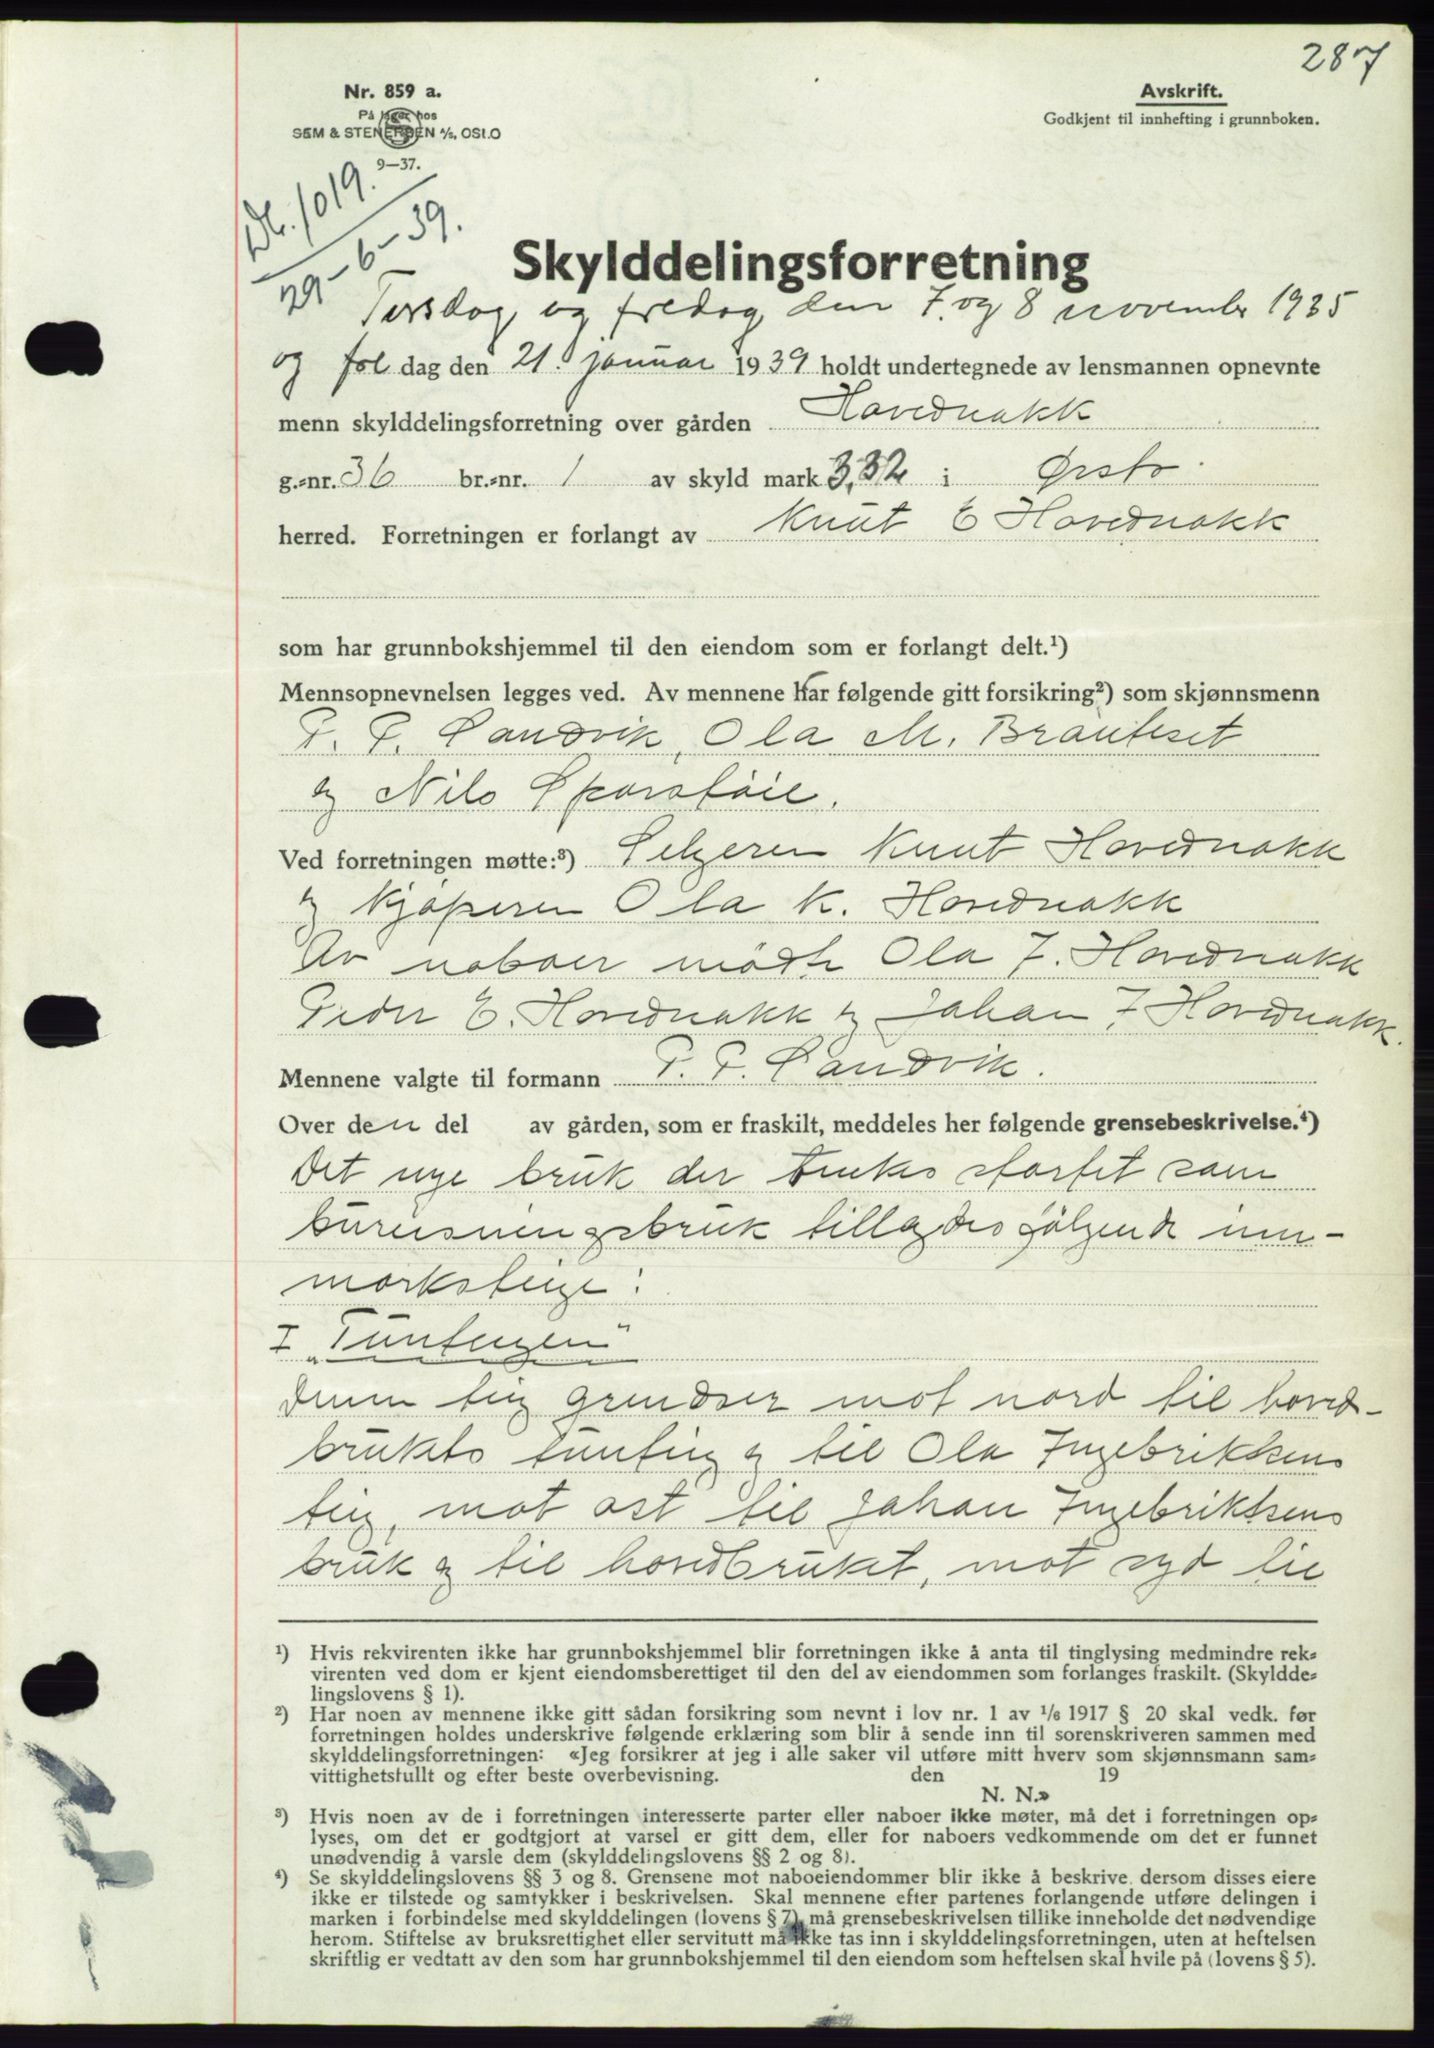 287
Nr. 859 a.
På lager hos
SEM & STENERSEN A/S, OSLO
9—37.
Avskrift.
Godkjent til innhefting i grunnboken.
Db. 1019.
29-6-39.
Skylddelingsforretning
Torsdag og fredag den 7. og 8 november 1935
og fol dag den 21. januar 1939 holdt undertegnede av lensmannen opnevnte
menn skylddelingsforretning over gården Hovednakk
g.=nr. 36 br.=nr. 1 av skyld mark 3,32 i Ørsta.
herred. Forretningen er forlangt av Knut E Hovednakk
som har grunnbokshjemmel til den eiendom som er forlangt delt.¹)
Mennsopnevnelsen legges ved. Av mennene har følgende gitt forsikring²) som skjønnsmenn
P. P. Sandvik, Ola M. Brauteset
og Nils Sporstöil.
Ved forretningen møtte:³) Selgeren Knut Hovednakk
og kjöperen Ola K. Hovednakk
Av naboer mödte Ola I. Hovednakk
Peder E. Hovednakk og Johan I Hovednakk.
Mennene valgte til formann P. P. Sandvik.
Over den del av gården, som er fraskilt, meddeles her følgende grensebeskrivelse.⁴)
Det nye bruk der tenkes stortet som
bureisningsbruk tillegdes fölgende inn-
marksteige:
I „Tunteigen"
Denne teig grendser mot nord til hoved-
brukets tunteig og til Ola Ingebriktsens
teig, mot ost til Johan Ingebriktsens
bruk og til hovedbruket, mot syd til
¹) Hvis rekvirenten ikke har grunnbokshjemmel blir forretningen ikke å anta til tinglysing medmindre rek=
virenten ved dom er kjent eiendomsberettiget til den del av eiendommen som forlanges fraskilt. (Skyldde=
lingslovens § 1).
²) Har noen av mennene ikke gitt sådan forsikring som nevnt i lov nr. 1 av 1/6 1917 § 20 skal vedk. før
forretningen holdes underskrive følgende erklæring som blir å sende inn til sorenskriveren sammen med
skylddelingsforretningen: «Jeg forsikrer at jeg i alle saker vil utføre mitt hverv som skjønnsmann sam=
vittighetsfullt og efter beste overbevisning. den 19
N. N.»
³) Hvis noen av de i forretningen interesserte parter eller naboer ikke møter, må det i forretningen op=
lyses, om det er godtgjort at varsel er gitt dem, eller for naboers vedkommende om det er funnet
unødvendig å varsle dem (skylddelingslovens §§ 2 og 8).
⁴) Se skylddelingslovens §§ 3 og 8. Grensene mot naboeiendommer blir ikke å beskrive, dersom disses eiere
ikke er tilstede og samtykker i beskrivelsen. Skal mennene efter partenes forlangende utføre delingen i
marken i forbindelse med skylddelingen (lovens § 7), må grensebeskrivelsen tillike inneholde det nødvendige
herom. Stiftelse av bruksrettighet eller servitutt må ikke tas inn i skylddelingsforretningen, uten at heftelsen
skriftlig er vedtatt av den som har grunnbokshjemmel til den eiendom som heftelsen skal hvile på (lovens § 5).